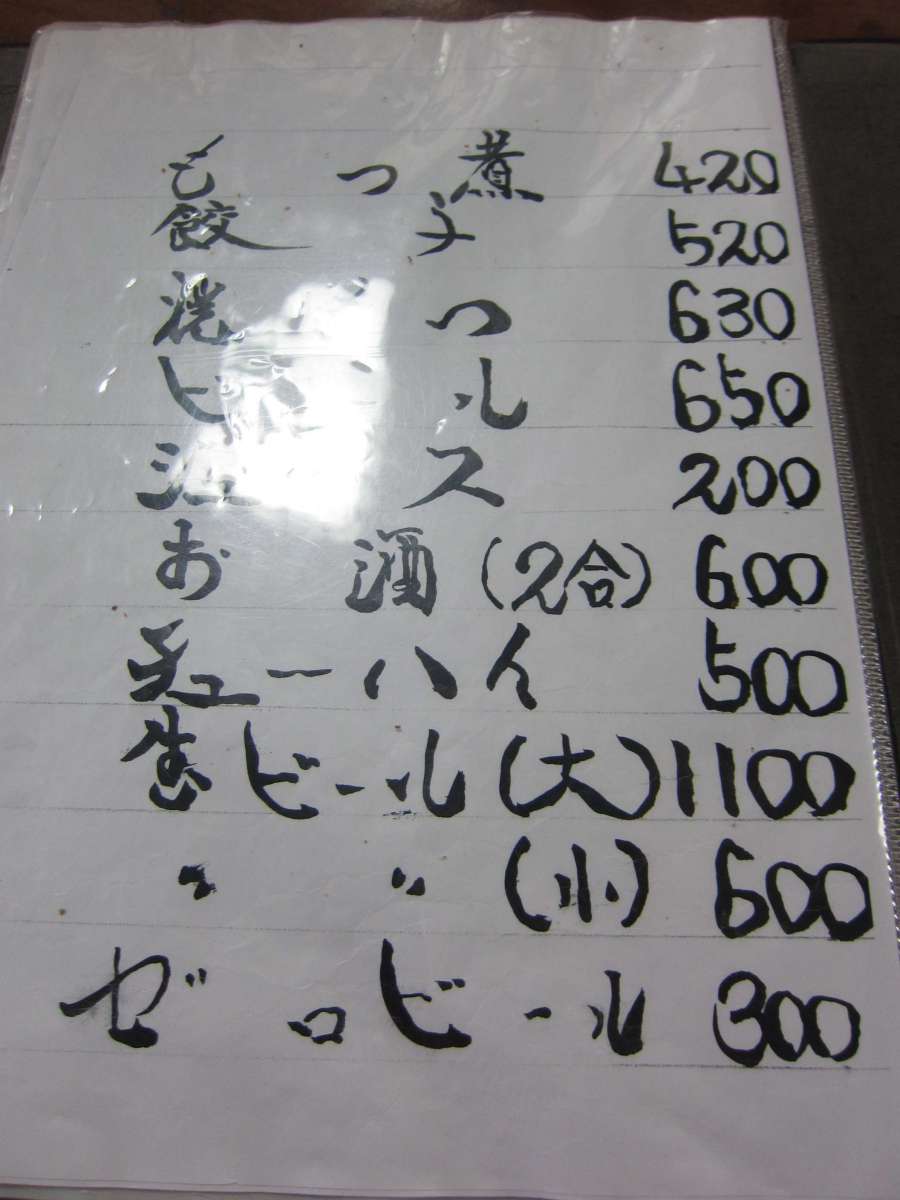 もつ煮 420
餃子 520
つ 630
ビール 650
ジュース 200
お酒(2合) 600
チューハイ 500
生ビール(大) 1100
〃 〃 (小) 600
ゼロビール 300